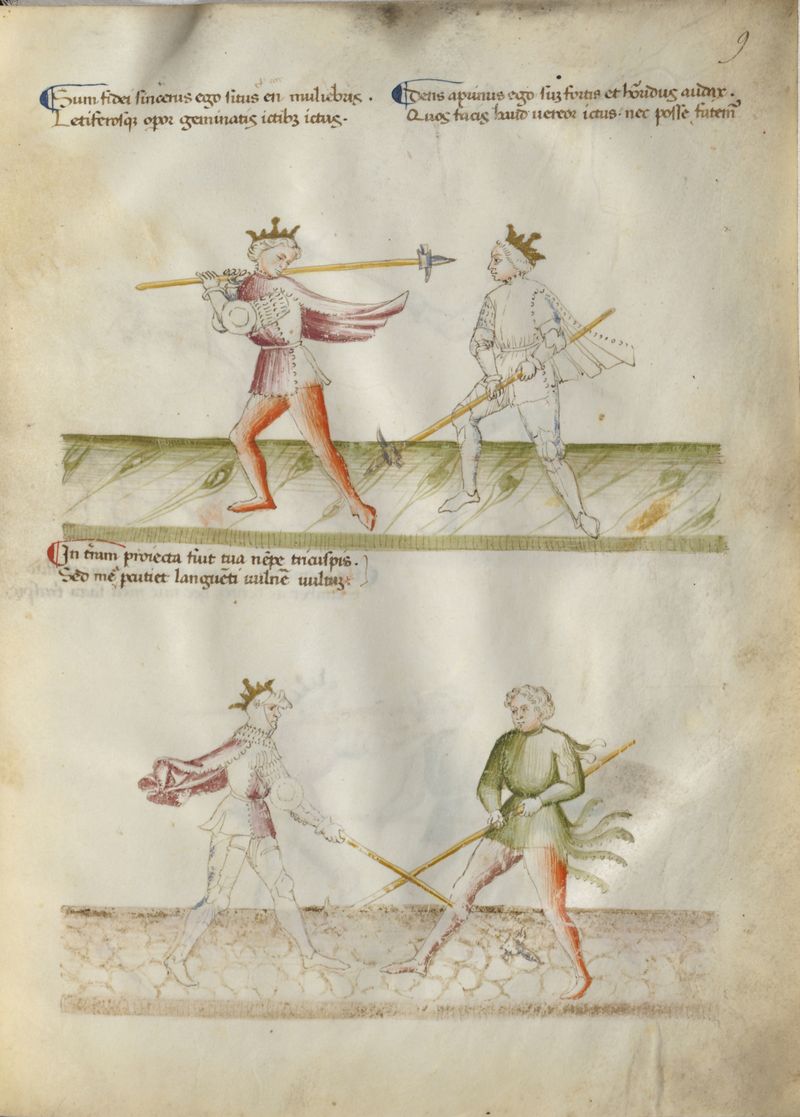 9
Sum fidei sincerus ego situs en muliebris .
Letiferosq; opor geminatis ictibꝫ ictus .
Dens aprinus ego suꝫ fortis et hōridus audax .
Quos facis haud uereor ictus . nec posse fatem̄
In tr̄am proiecta fuit tua nēpe tricuspis .
Sed me patiet languēti uulnē uultuꝫ